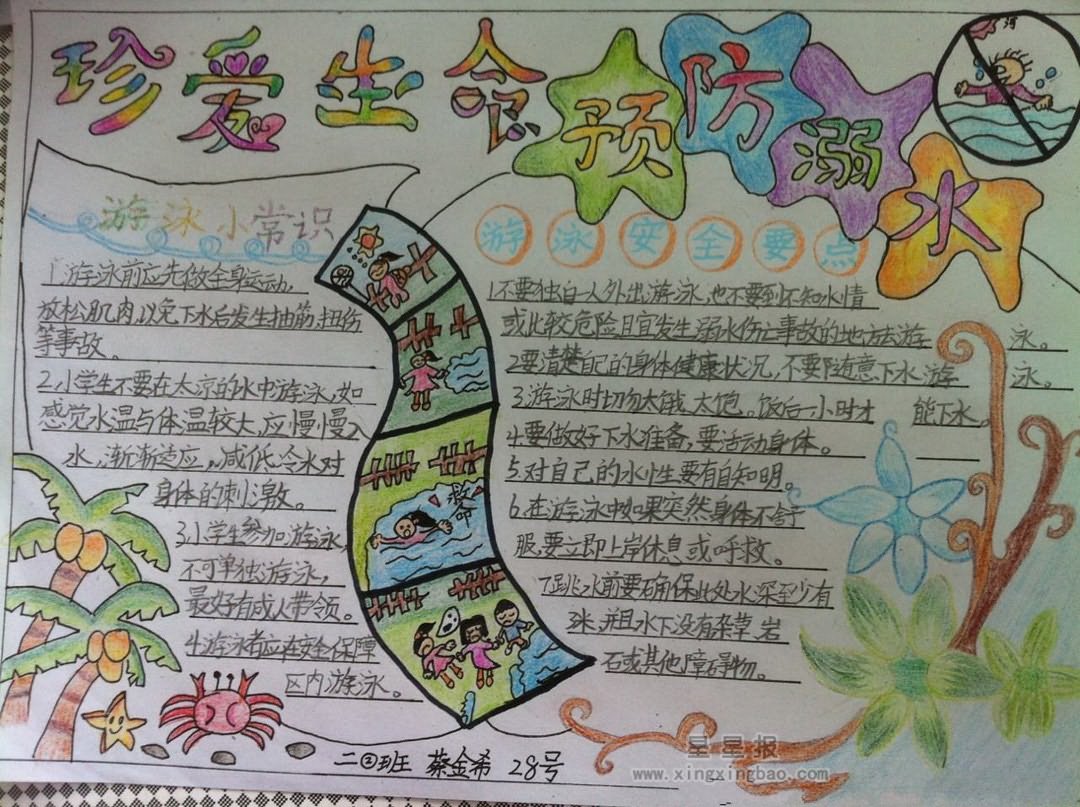 珍爱生命预防溺水
河
游泳小常识
1.游泳前应先做全身运动,
放松肌肉,以免下水后发生抽筋,扭伤
等事故。
2.小学生不要在太凉的水中游泳,如
感觉水温与体温较大,应慢慢入
水,渐渐适应,减低冷水对
身体的刺激。
3.小学生参加游泳,
不可单独游泳,
最好有成人带领。
4.游泳者应在安全保障
区内游泳。
救命
游泳安全要点
1.不要独自一人外出游泳,也不要到不知水情
或比较危险且宜发生溺水伤亡事故的地方去游泳。
2.要清楚自己的身体健康状况,不要随意下水游泳。
3.游泳时切勿太饿、太饱。饭后一小时才能下水。
4.要做好下水准备,要活动身体。
5.对自己的水性要有自知明。
6.在游泳中如果突然身体不舒
服,要立即上岸休息或呼救。
7.跳水前要确保此处水深至少有
3米,并且水下没有杂草岩
石或其他障碍物。
二②班 蔡金希 28号
星星报
www.xingxingbao.com